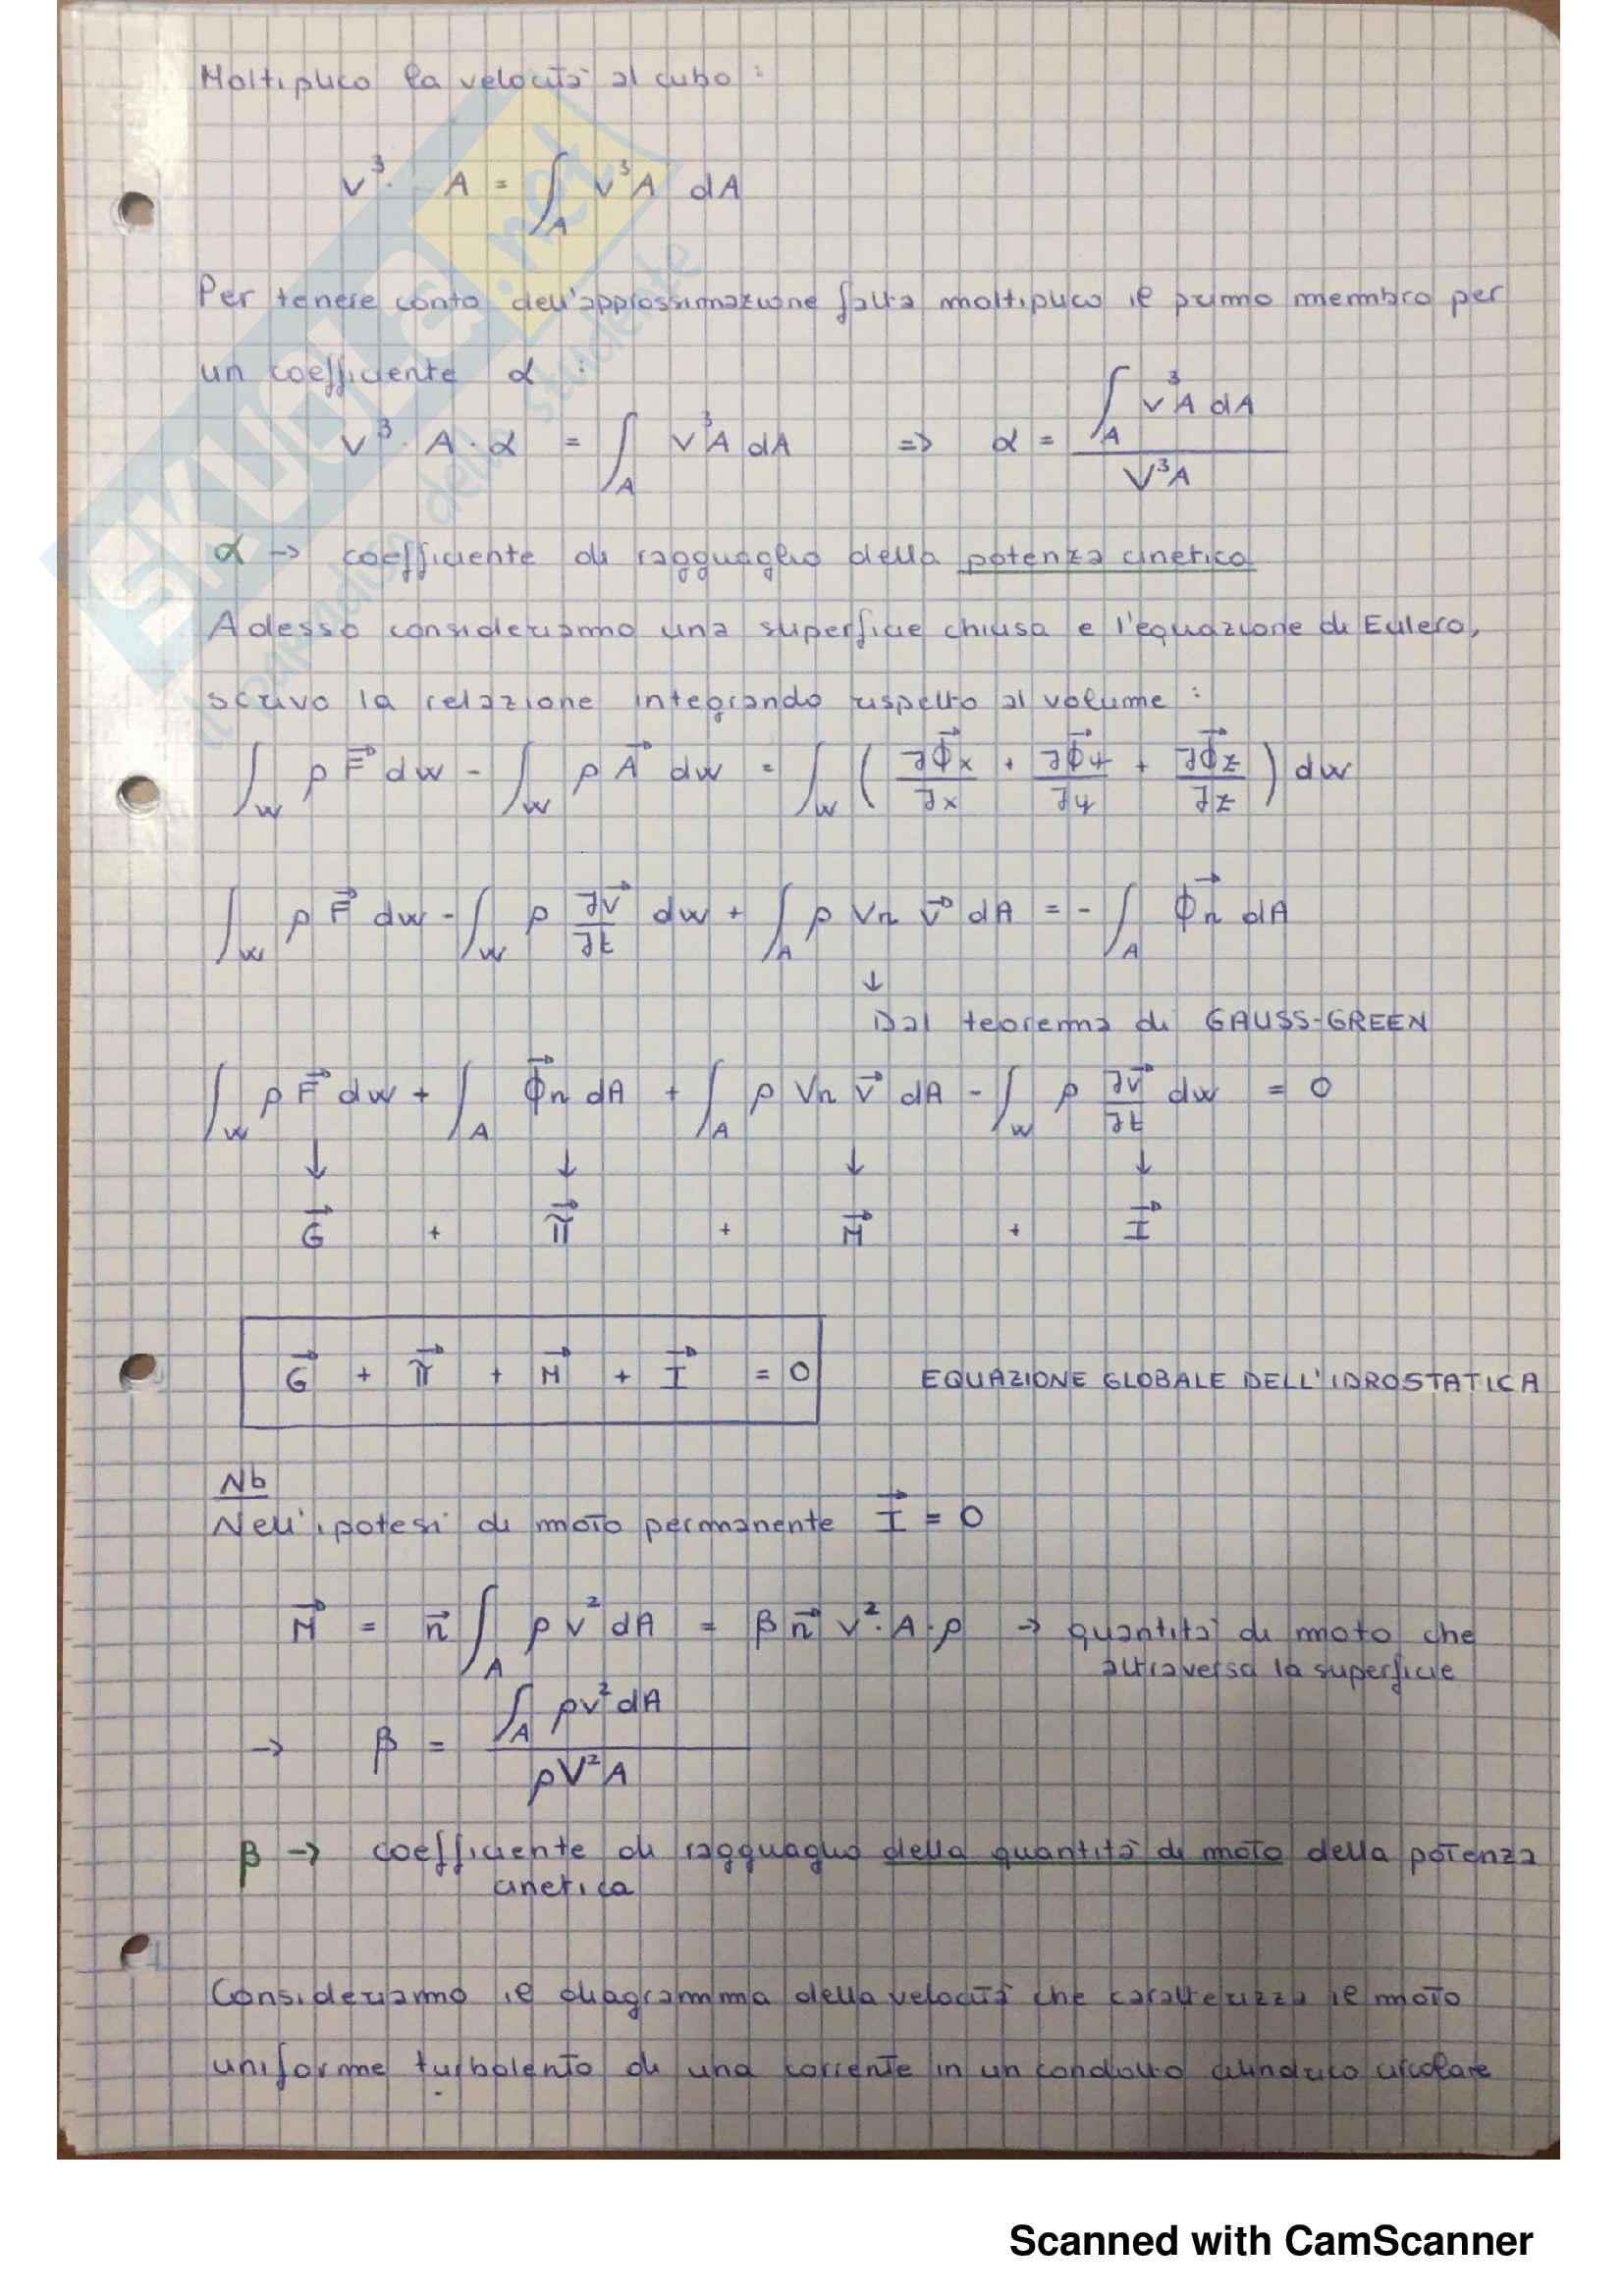 Moltiplico la velocità al cubo :
V³ · A = ∫_A v³A dA
Per tenere conto dell'approssimazione fatta moltiplico il primo membro per
un coefficiente α :
V³ · A · α = ∫_A v³A dA => α = ∫_A v³A dA / V³A
α -> coefficiente di ragguaglio della potenza cinetica
Adesso consideriamo una superficie chiusa e l'equazione di Eulero,
scrivo la relazione integrando rispetto al volume :
∫_W ρ F⃗ dw - ∫_W ρ A⃗ dw = ∫_W ( ∂Φ⃗x/∂x + ∂Φ⃗y/∂y + ∂Φ⃗z/∂z ) dw
∫_W ρ F⃗ dw - ∫_W ρ ∂v⃗/∂t dw + ∫_A ρ Vn v⃗ dA = - ∫_A Φ⃗n dA
↓
Dal teorema di GAUSS-GREEN
∫_W ρ F⃗ dw + ∫_A Φ⃗n dA + ∫_A ρ Vn v⃗ dA - ∫_W ρ ∂v⃗/∂t dw = 0
↓ ↓ ↓ ↓
G⃗ + π⃗ + M⃗ + I⃗
G⃗ + π⃗ + M⃗ + I⃗ = 0 EQUAZIONE GLOBALE DELL'IDROSTATICA
Nb
Nell'ipotesi di moto permanente I⃗ = 0
M⃗ = n⃗ ∫_A ρ v² dA = β n⃗ v² · A · ρ -> quantità di moto che
attraversa la superficie
-> β = ∫_A ρv² dA / ρV²A
β -> coefficiente di ragguaglio della quantità di moto della potenza
cinetica
Consideriamo il diagramma della velocità che caratterizza il moto
uniforme turbolento di una corrente in un condotto cilindrico circolare
SKUOLA.net
il paradiso dello studente
Scanned with CamScanner